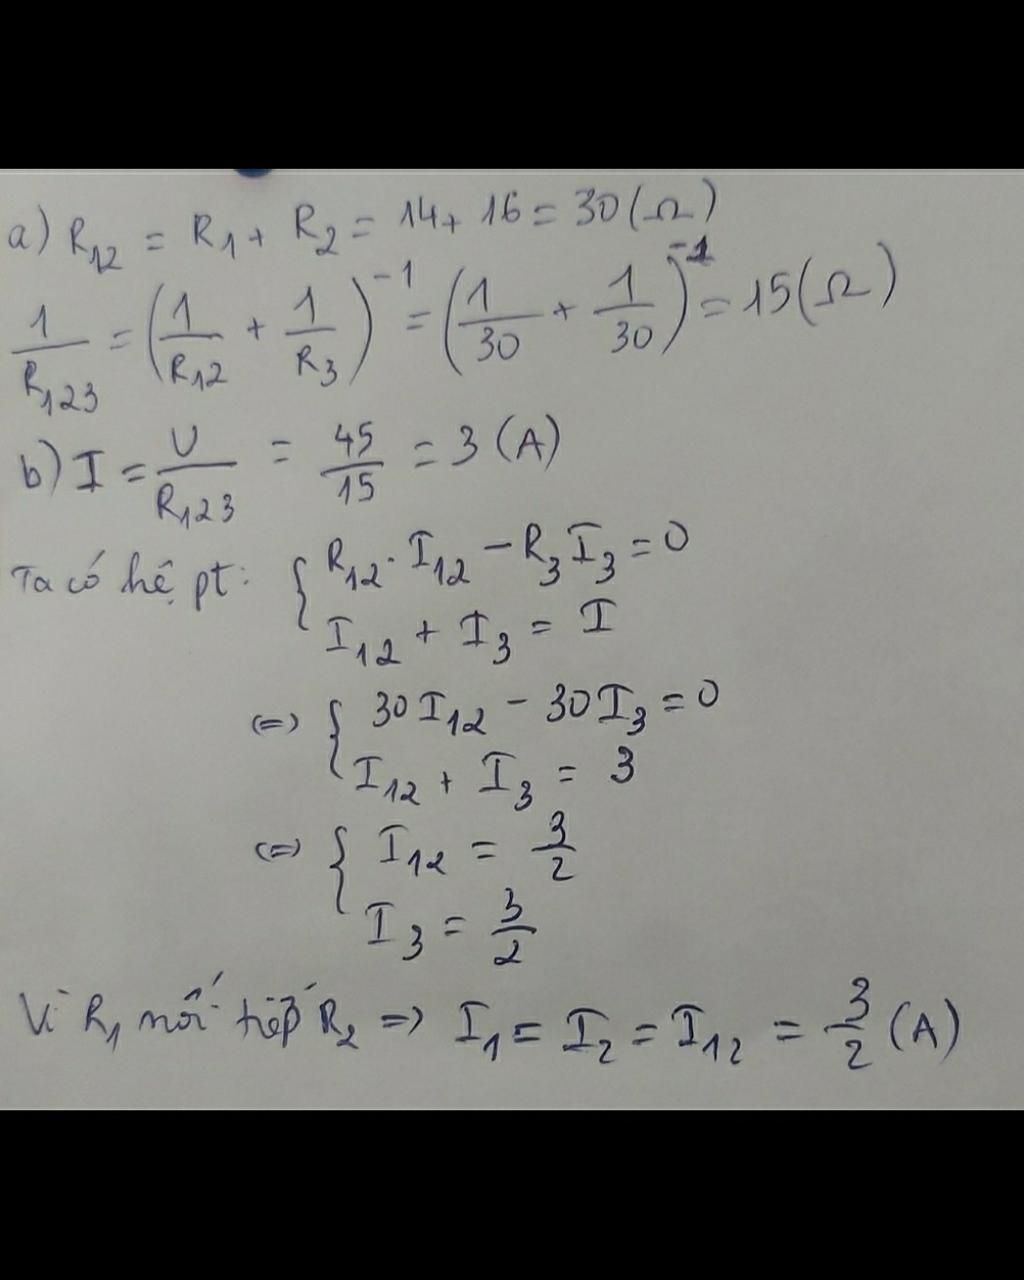 a) R₁₂ = R₁ + R₂ = 14 + 16 = 30 (Ω)
1/R₁₂₃ = (1/R₁₂ + 1/R₃)⁻¹ = (1/30 + 1/30)⁻¹ = 15 (Ω)
b) I = U/R₁₂₃ = 45/15 = 3 (A)
Ta có hệ pt: { R₁₂ . I₁₂ - R₃ I₃ = 0
I₁₂ + I₃ = I
(=) { 30 I₁₂ - 30 I₃ = 0
I₁₂ + I₃ = 3
(=) { I₁₂ = 3/2
I₃ = 3/2
Vì R₁ nối tiếp R₂ => I₁ = I₂ = I₁₂ = 3/2 (A)